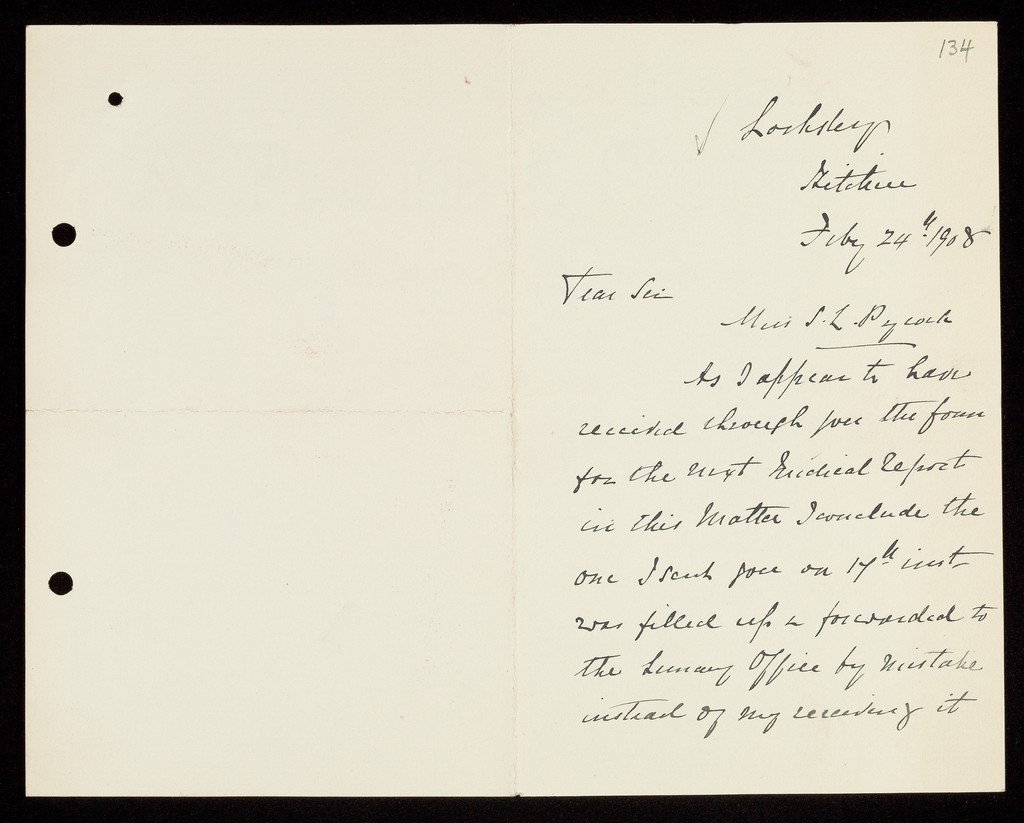 134
Locksley
Hitchin
Feby 24th 1908
Dear Sir
Miss S. L. Pycock
As I appear to have
received through you the form
for the next Medical Report
in this Matter I conclude the
one I sent you on 17th inst
was filled up & forwarded to
the Lunacy Office by mistake
instead of my receiving it